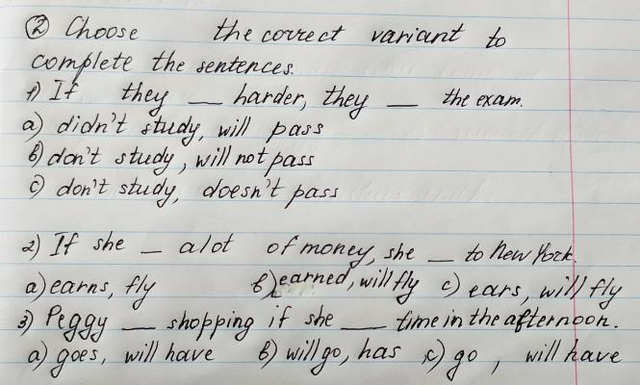 ② Choose the correct variant to
complete the sentences.
1) If they __ harder, they __ the exam.
a) didn't study, will pass
b) don't study, will not pass
c) don't study, doesn't pass
2) If she _ alot of money, she _ to New York.
a) earns, fly b) earned, will fly c) ears, will fly
3) Peggy __ shopping if she __ time in the afternoon.
a) goes, will have b) will go, has c) go, will have